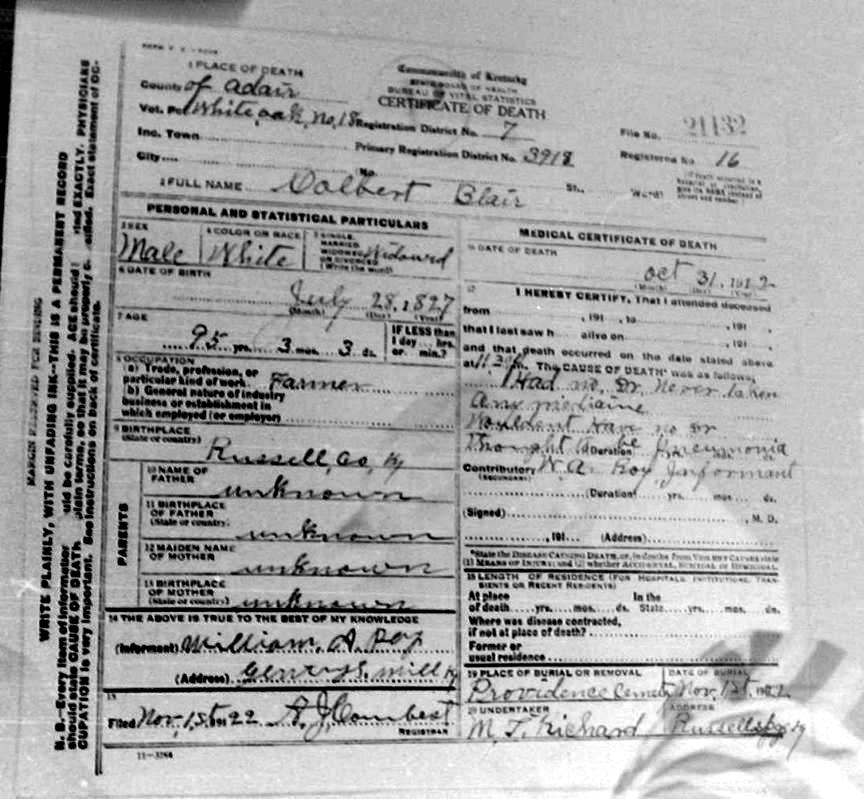 1 PLACE OF DEATH
County of Adair
Vot. Pct White oak, no, 18
Inc. Town
City
Commonwealth of Kentucky
STATE BOARD OF HEALTH
BUREAU OF VITAL STATISTICS
CERTIFICATE OF DEATH
Registration District No. 7
File No. 21132
Primary Registration District No. 3918
Registered No 16
No. St., Ward)
2 FULL NAME Colbert Blair
PERSONAL AND STATISTICAL PARTICULARS
3 SEX
Male
4 COLOR OR RACE
White
5 SINGLE, MARRIED, WIDOWED OR DIVORCED
(Write the word)
Widowed
6 DATE OF BIRTH
July 28, 1827
(Month) (Day) (Year)
7 AGE
95 yrs. 3 mos. 3 ds.
IF LESS than
1 day ... hrs.
or ... min.?
8 OCCUPATION
(a) Trade, profession, or
particular kind of work Farmer
(b) General nature of industry
business or establishment in
which employed (or employer)
9 BIRTHPLACE
(State or country)
Russell, Co, Ky
PARENTS
10 NAME OF
FATHER
unknown
11 BIRTHPLACE
OF FATHER
(State or country)
unknown
12 MAIDEN NAME
OF MOTHER
unknown
13 BIRTHPLACE
OF MOTHER
(State or country)
unknown
14 THE ABOVE IS TRUE TO THE BEST OF MY KNOWLEDGE
(Informant) William, A, Roy
(Address) Gentrys, mill Ky
15
Filed Nov, 1st 1922 A J Combest
REGISTRAR
11-3184
MEDICAL CERTIFICATE OF DEATH
16 DATE OF DEATH
oct 31, 1922
(Month) (Day) (Year)
17 I HEREBY CERTIFY, That I attended deceased
from , 191 , to , 191
that I last saw h alive on , 191
and that death occurred on the date stated above
at 11:30 m. The CAUSE OF DEATH* was as follows:
I Had no, Dr. never taken
any mediaine
Wouldent Have no Dr
Thought to be Pneumonia
(Duration) yrs. mos. ds.
Contributory W. A. Roy, Informant
(SECONDARY)
(Duration) yrs. mos. ds.
(Signed) , M. D.
, 191 (Address)
*State the DISEASE CAUSING DEATH, or, in deaths from VIOLENT CAUSES state
(1) MEANS OF INJURY; and (2) whether ACCIDENTAL, SUICIDAL or HOMICIDAL.
18 LENGTH OF RESIDENCE (FOR HOSPITALS, INSTITUTIONS, TRANSIENTS OR RECENT RESIDENTS)
At place In the
of death yrs. mos. ds. State yrs. mos. ds.
Where was disease contracted,
if not at place of death?
Former or
usual residence
19 PLACE OF BURIAL OR REMOVAL
Providence Cemety
DATE OF BURIAL
Nov, 1st, 1922
20 UNDERTAKER
M. T. Richard
ADDRESS
Russellspgs Ky
MARGIN RESERVED FOR BINDING
WRITE PLAINLY, WITH UNFADING INK—THIS IS A PERMANENT RECORD
N. B.—Every item of information should be carefully supplied. AGE should be stated EXACTLY. PHYSICIANS
should state CAUSE OF DEATH in plain terms, so that it may be properly classified. Exact statement of OC-
CUPATION is very important. See instructions on back of certificate.